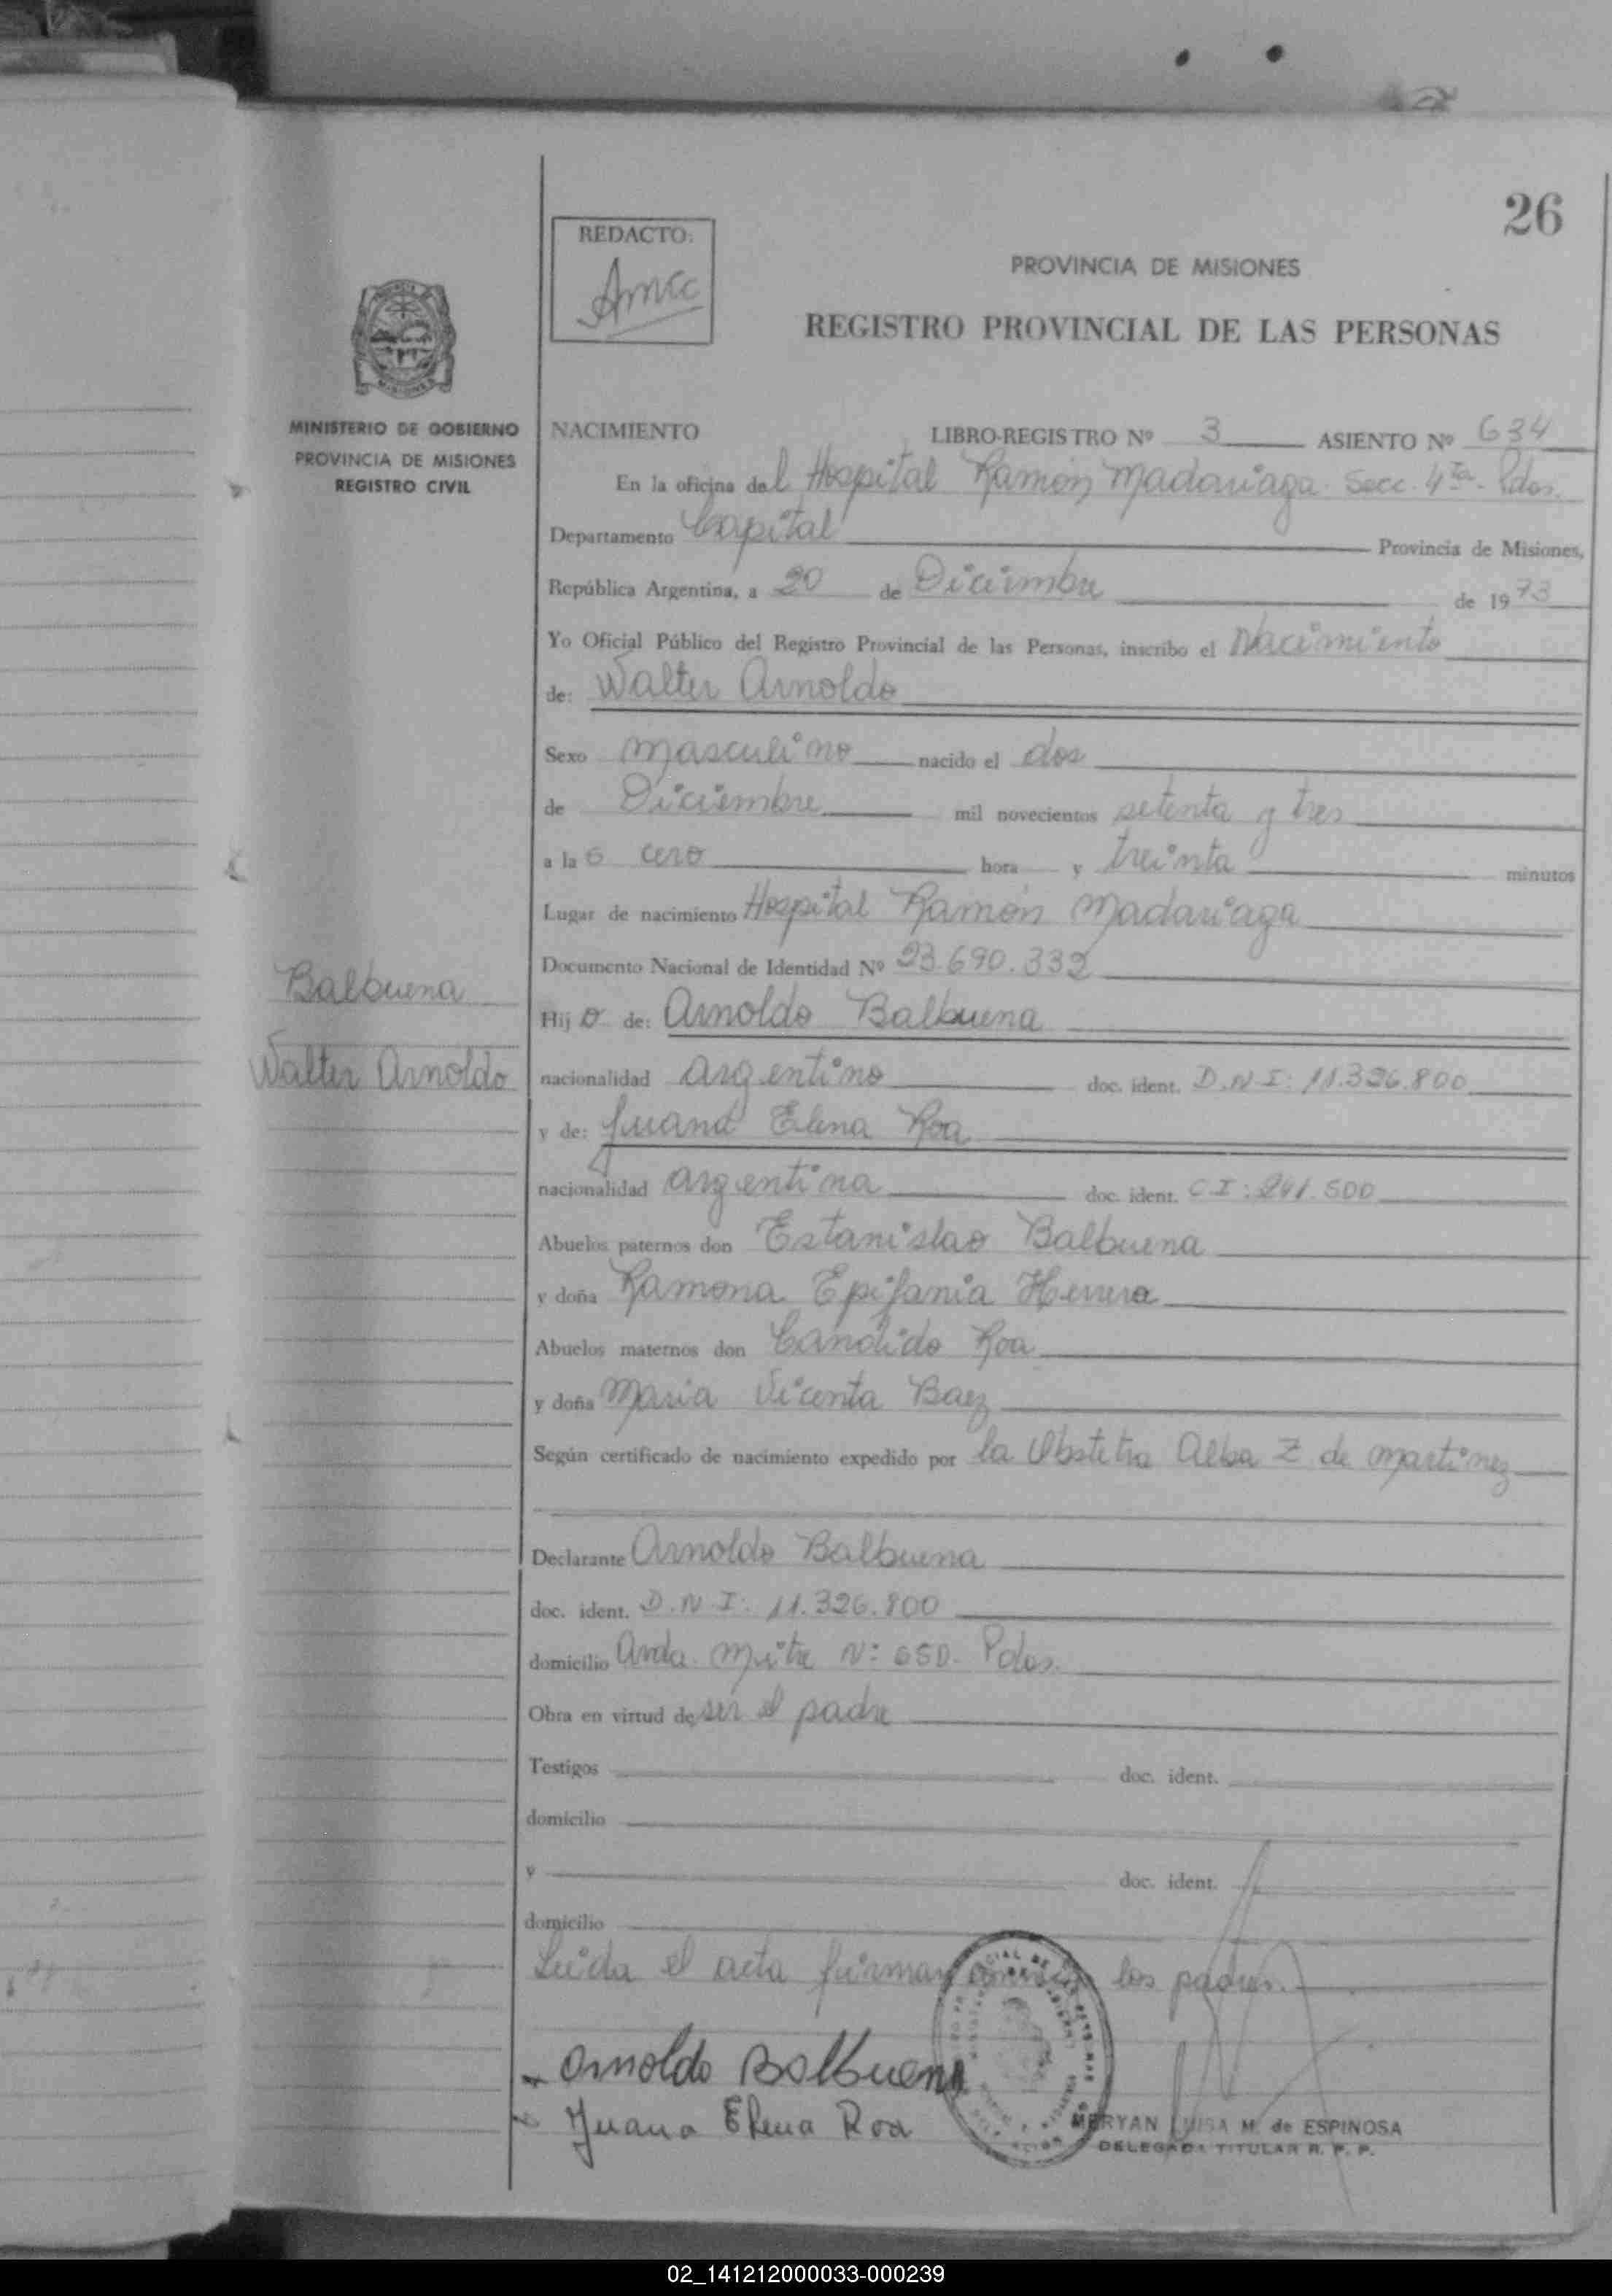 26
REDACTO:
PROVINCIA DE MISIONES
REGISTRO PROVINCIAL DE LAS PERSONAS
MINISTERIO DE GOBIERNO
PROVINCIA DE MISIONES
REGISTRO CIVIL
NACIMIENTO LIBRO-REGISTRO Nº 3 ASIENTO Nº 634
En la oficina del Hospital Ramón Madariaga Secc. 4ta. Pdas.
Departamento Capital Provincia de Misiones,
República Argentina, a 20 de Diciembre de 1973
Yo Oficial Público del Registro Provincial de las Personas, inscribo el Nacimiento
de: Walter Arnoldo
Sexo masculino nacido el dos
de Diciembre mil novecientos setenta y tres
a la s cero hora y treinta minutos
Lugar de nacimiento Hospital Ramón Madariaga
Documento Nacional de Identidad Nº 23.690.332
Balbuena
Hijo de: Arnoldo Balbuena
Walter Arnoldo
nacionalidad argentino doc. ident. D.N.I: 11.326.800
y de: Juana Elena Roa
nacionalidad argentina doc. ident. C.I: 241.500
Abuelos paternos don Estanislao Balbuena
y doña Ramona Epifania Herrera
Abuelos maternos don Candido Roa
y doña Maria Vicenta Baez
Según certificado de nacimiento expedido por la Obstetra Alba Z de Martinez
Declarante Arnoldo Balbuena
doc. ident. D.N.I: 11.326.800
domicilio Avda. Mitre Nº 650. Pdas.
Obra en virtud de ser el padre
Testigos doc. ident.
domicilio
y doc. ident.
domicilio
Leida el acta firman conmigo los padres.
Arnoldo Balbuena
Juana Elena Roa
MERYAN LUISA M. de ESPINOSA
DELEGADA TITULAR R. P. P.
02_141212000033-000239